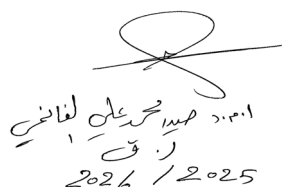 ا.م.د محمد علي الغانمي
ر. ق
2026 / 2025